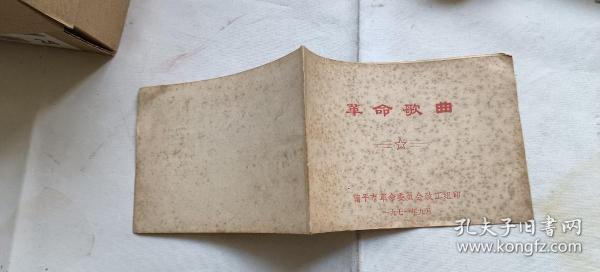 革命歌曲
南平市革命委员会政工组印
一九七一年九月
孔夫子旧书网
www.kongfz.com